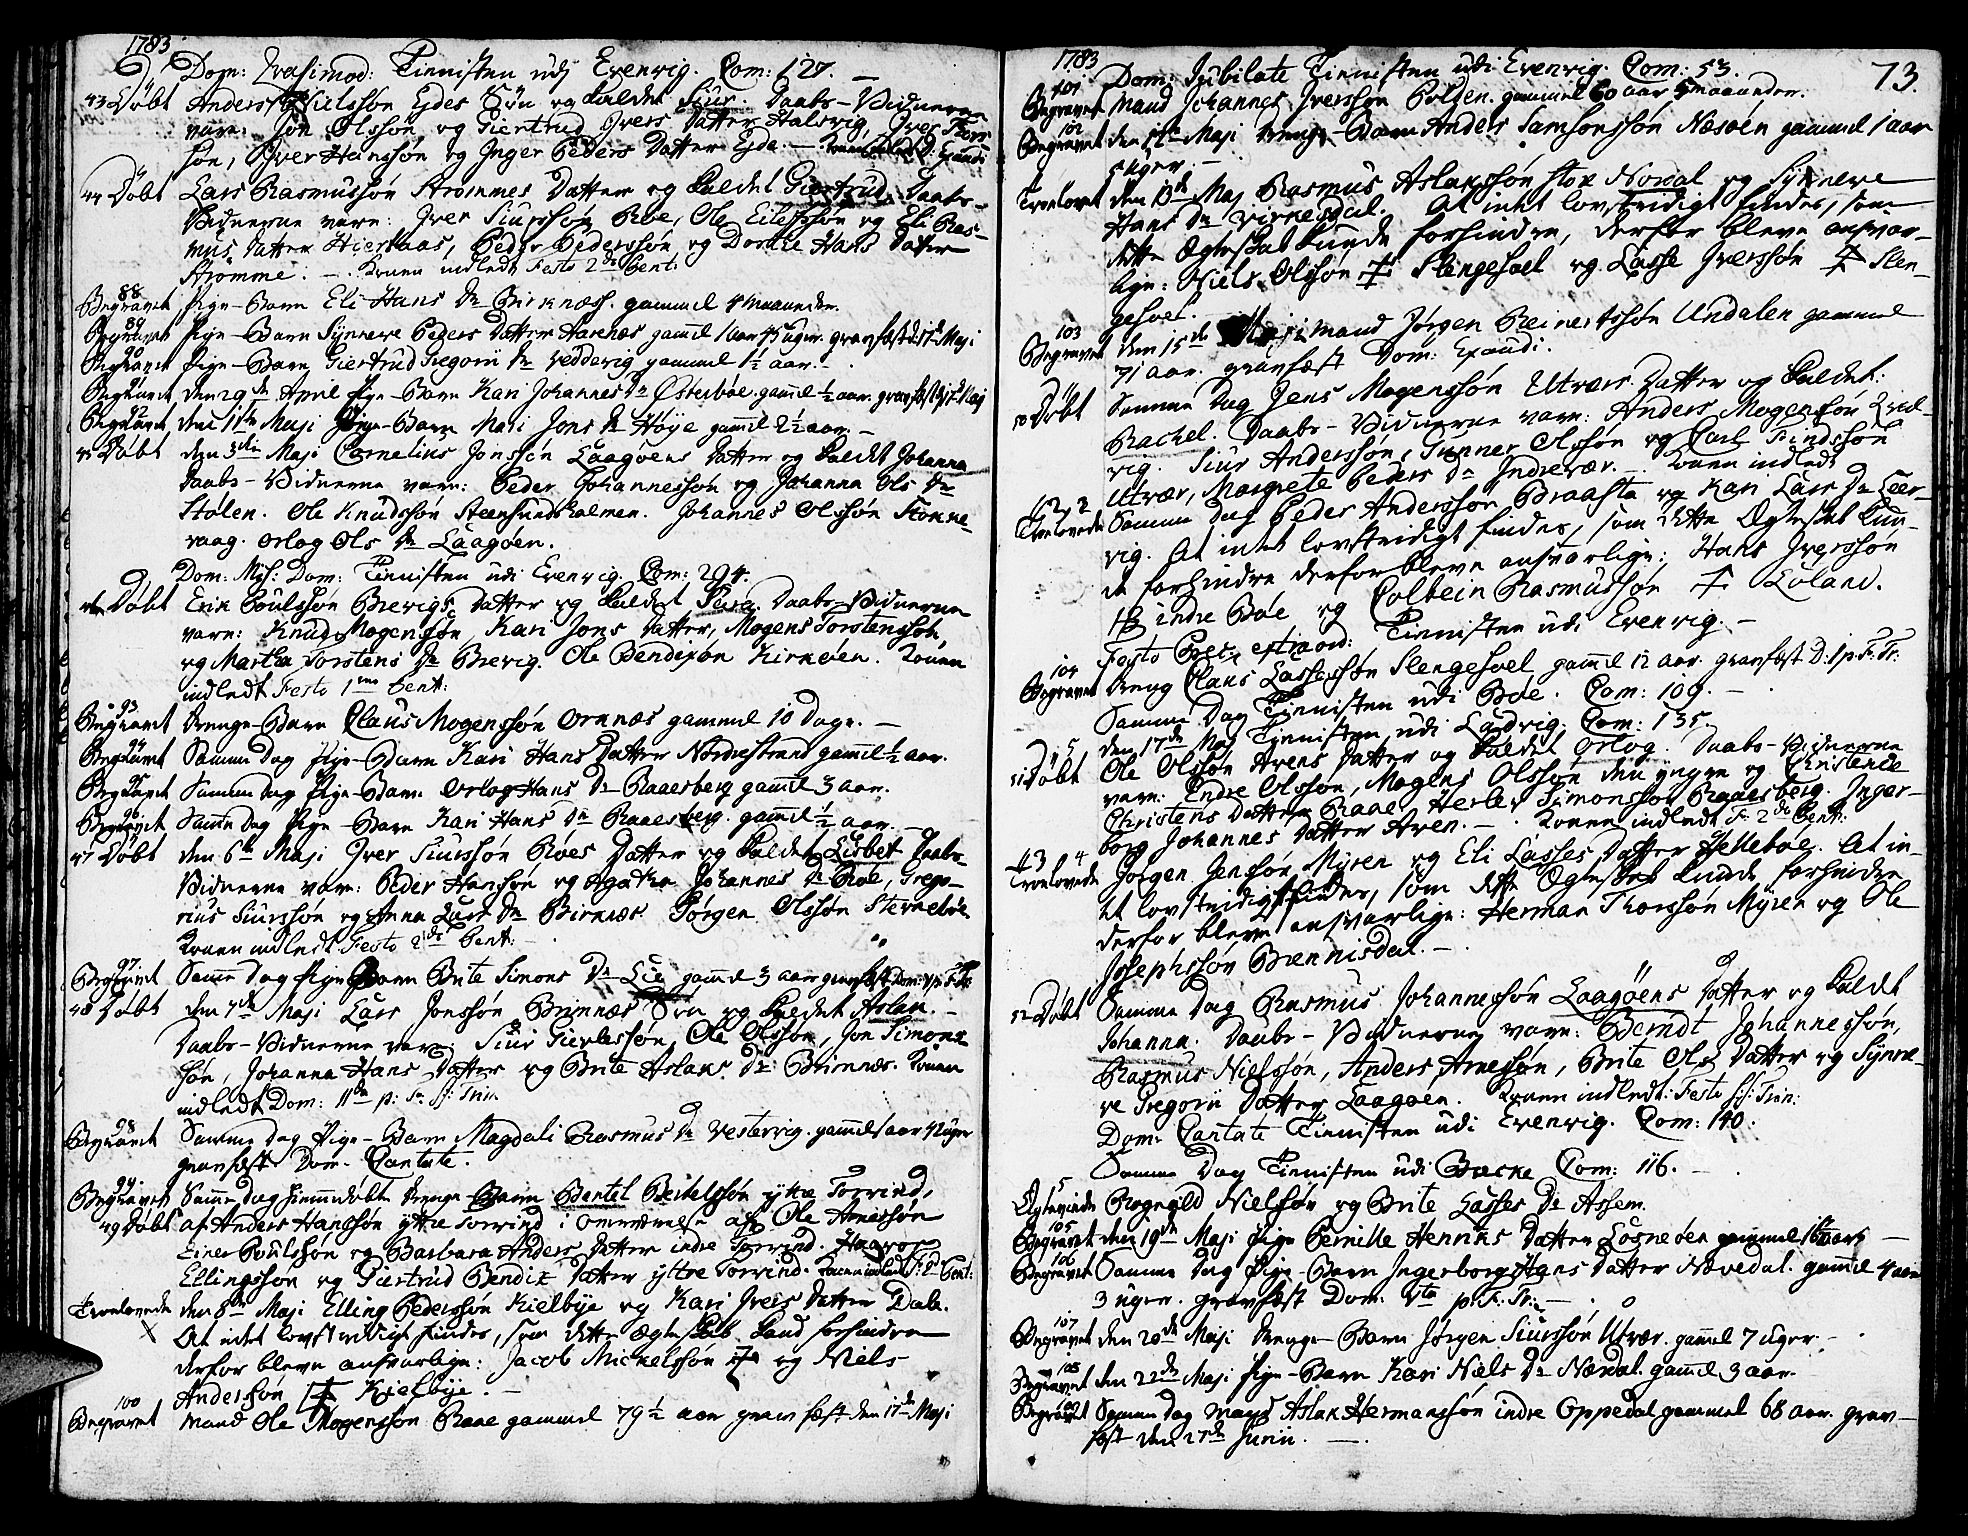 1783
Dom: Qvasimod: Tienisten udj Evenvig. Com: 127. —
43 Døbt Anders Nielssøn Ejdes Søn og kaldet Siur. Daabs-Vidnerne
vare: Jon Olssøn og Giertrud Ivers Datter Halsvig, Iver Thors
søn, Iver Hanssøn og Inger Peders Datter Ejde. —
44 Døbt Lars Rasmussøn Strømmes Datter og kaldet Giertrud. Daabs-
Vidnerne vare: Iver Siurssøn Bøe, Ole Eilefssøn og Eli Ras-
mus Datter Hierkaas, Peder Pederssøn og Dorthe Hans Datter
Strømme. — Konen indledt Festo 2de Pent:
88
Begravet Pige-Barn Eli Hans Dr Birknæss. gammel 4 maaneder.
89
Begravet Pige-Barn Synneve Peders Datter gammel 1 aar
90
Begravet Pige-Barn Giertrud Gregorii Dr Veddevig gammel 1½ aar. —
91
Begravet den 29de April Pige-Barn Kari Johannes Dr Østerbøe. gaml ½ aar.
92
Begravet den 1ste Maji Pige-Barn Mari Jons Dr Høye gaml 2½ aar. —
45 Døbt den 3die Maji Cornelius Jonssøn Laagøens Datter og kaldet Johanna
Daabs-Vidnerne vare: Peder Johannessøn og Johanna Ols Dr
Stølen. Ole Knudssøn Steensundholmen. Johannes Olssøn Stokke-
vaag. Orlog Ols Dr Laagøen.
Dom: Mis: Dom: Tienisten udi Evenvig. Com: 294.
46 Døbt Erik Poulssøn Brevigs Datter og kaldet Daabs-Vidnerne
vare: Knud Mogenssøn, Kari Jons Datter, Mogens Torstenssøn,
og Martha Torstens Dr Brevig. Ole Bendixøn Kirkøen. Konen
indledt Festo 1mo Pent:
93
Begravet Drenge-Barn Claus Mogenssøn Ornnæs gammel 10 Dage. —
94
Begravet Samme Dag Pige-Barn Kari Hans Datter Nordrestrand gamel ½ aar.
95
Begravet Samme dag Pige-Barn Orlog Hans Dr Raaesberg gaml 3 aar.
96
Begravet Same dag Pige-Barn Kari Hans Dr Raaesberg. gammel ½ aar. —
47 Døbt den 6te Maji Iver Siurssøn Bøes Datter og kaldet Lisbet Daabs-
Vidnerne vare: Peder Hanssøn og Agatha Johannes Dr Bøe, Grego-
rius Siurssøn og Anna Lars Dr Birknæs Jørgen Olssøn Sternebøe
Konen indledt Festo 2de Pent: —
97
Begravet Same dag Pige Barn Brite Simons Dr Lie gaml 3 aar
48 Døbt den 7de Maji Lars Jonssøn Brimnæs Søn og kaldet Aslak. —
Daabs-Vidnerne vare: Siur Gierlessøn, Ole Olssøn, Jon Simons
søn, Johanna Hans Datter og Brite Aslaks Dr Brimnæs. Konen
indledt Dom:
98
Begravet Samme dag Pige-Barn Magdali Rasmus Dr Vestervig. gamel 1 aar 4 uger
gravfæst Dom. Cantate.
99
Begravet Same dag hiemmedøbte Drenge Barn Bertel Beitelssøn yttre Torvind,
49 Døbt af Anders Hanssøn yttre Torvind i omværelse af Ole Arnessøn
Einer Poulssøn og Barbara Anders Datter indre Torvind.
Ellingssøn og Giertrud Bendix Datter yttre Torvind.
Trolovede den 8de Maji Elling Pederssøn Kielbye og Kari Ivers Datter Dale.
At intet lovstridigt findes, som dette Ægteskab kand forhindre
derfor bleve ansvarlige: Jacob Mickelssøn og Niels
Anderssøn Kielbye. —
100
Begravet Mand Ole Mogenssøn Raae gammel 79½ aar gravfæst den 17de Maji
1783
73
Dom: Jubilate Tienisten udi Evenvig. Com: 53.
101
Begravet Mand Johannes Iverssøn gammel 60 aar 5 maaneder.
102
Begravet den Maji Drenge-Barn Anders Samsonssøn Næsøen gammel 1 aar
uger. —
Trolovet den 13de Maj Rasmus Aslakssøn Nordal og Synneve
Hans Dr Virkesdal. At intet lovstridigt findes, som
dette Ægteskab kunde forhindre, derfor bleve ansvar-
lige: Niels Olssøn Slengesoel og Lasse Iverssøn Slen-
gesoel.
103
Begravet den 15de Maji Mand Jørgen Reinertssøn Undalen gammel
71 aar. gravfæst Dom: Exaudi.
50 Døbt Samme Dag Jens Mogenssøn Utvær Datter og kaldet:
Rachel. Daabs-Vidnerne vare: Anders Mogenssøn
vig. Siur Anderssøn, Gunner Olssøn og Carl Findssøn
Utvær, Margrete Peders Dr Indrevær. — Konen indledt
Trolovede Samme Dag Peder Anderssøn Braasta og Kari Lars Dr Leer-
vig. At intet lovstridigt findes, som dette Ægteskab kun-
de forhindre derfor bleve ansvarlige: Hans Iverssøn
indre Bøe og Colbein Rasmussøn Loland.
Festo Prec: extraord: Tienisten udi Evenvig. —
104
Begravet Dreng Claus Lassessøn Slengesoel gammel 12 aar. gravfæst D: 1 p: F: Tr:
Samme Dag Tienisten udi Bøe. Com: 109. —
den 17de Maj Tienisten udi Ladvig. Com: 135.
51 Døbt Ole Olssøn Arens Datter og kaldet Orlog. Daabs-Vidnerne
vare: Endre Olssøn, Mogens Olssøn den yngre og Christence
Christens Datter Raae, Herlev Simonssøn Raaesberg. Inger-
borg Johannes Datter Aren. — Konen indledt F: 2de Pent:
Trolovede Jørgen Jenssøn Myren og Eli Lasses Datter Hellebøe. At in-
tet lovstridigt findes, som dette Ægteskab kunde forhindre
derfor bleve ansvarlige: Herman Thorssøn Myren og Ole
Josephssøn Brennisdal. —
52 Døbt Samme Dag Rasmus Johannessøn Laagøens Datter og kaldet
Johanna. Daabs-Vidnerne vare: Berndt Johannessøn,
Rasmus Nielssøn, Anders Arnessøn, Brite Ols Datter og Synne-
ve Gregorii Datter Laagøen. Konen indledt: Festo Trin:
Dom: Cantate Tienisten udi Evenvig. Com: 140.
Samme Dag Tienisten udi Brecke Com: 116. —
Ægteviede Rognald Nielssøn og Brite Lasses Dr Assem.
105
Begravet den 19de Maji Pige Pernille Henriks Datter Losneøen gammel 16 aar
106
Begravet Samme Dag Pige-Barn Ingerborg Hans Datter Nævedal. gammel 4 aar
3 uger. gravfæst Dom: p: F: Tr:
107
Begravet den 20de Maji Drenge-Barn Jørgen Siurssøn Utvær. gammel 7 uger. —
108
Begravet den 22de Maji Pige-Barn Kari Niels Dr Nordal. gaml 3 aar.
109
Begravet Samme dag Mand Aslak Hermanssøn indre Oppedal gammel 68 aar. grav-
fæst den 27de Junii. —